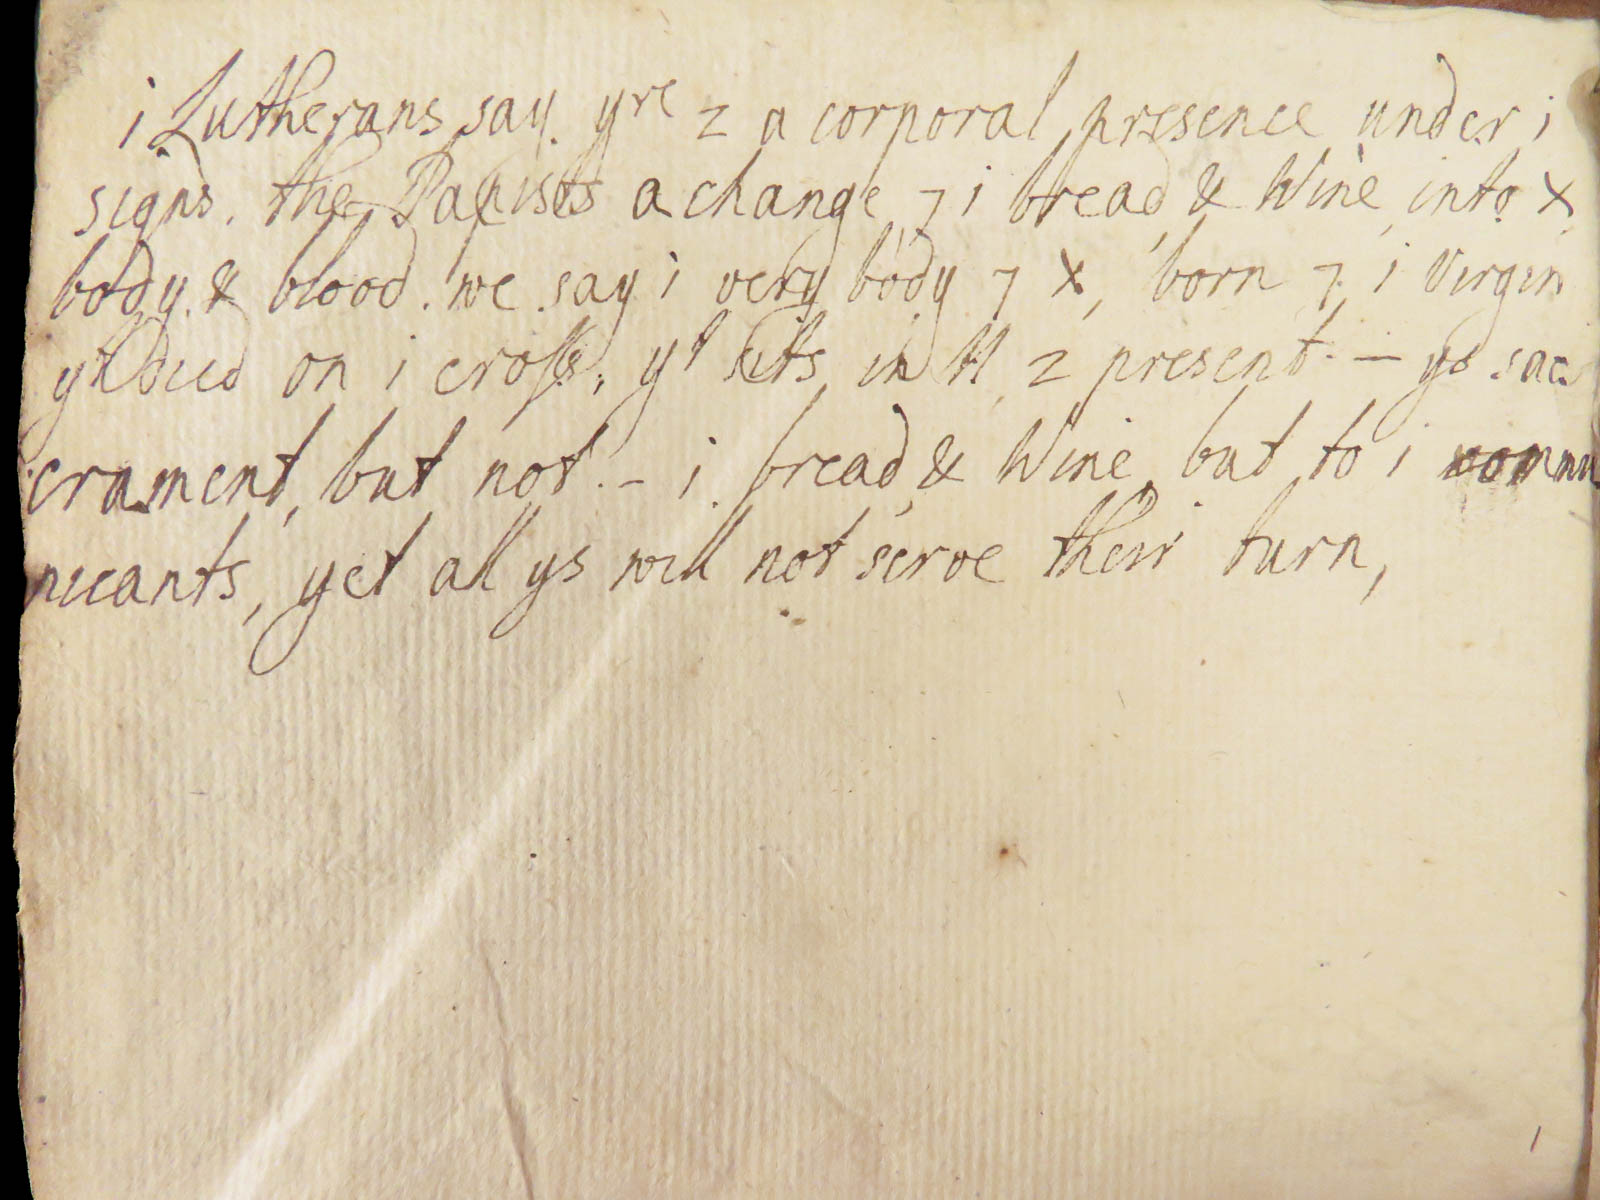 i Lutherans say yre z a corporal presence under i
signs. the Papists a change ⁊ i bread & Wine into X
body & blood. we say i very body ⁊ X, born ⁊ i Virgin
yt died on i crosse, yt sits in H z present. – ys sac
crament, but not – i bread & Wine but to i commu
nicants, yet all ys will not serve their turn,